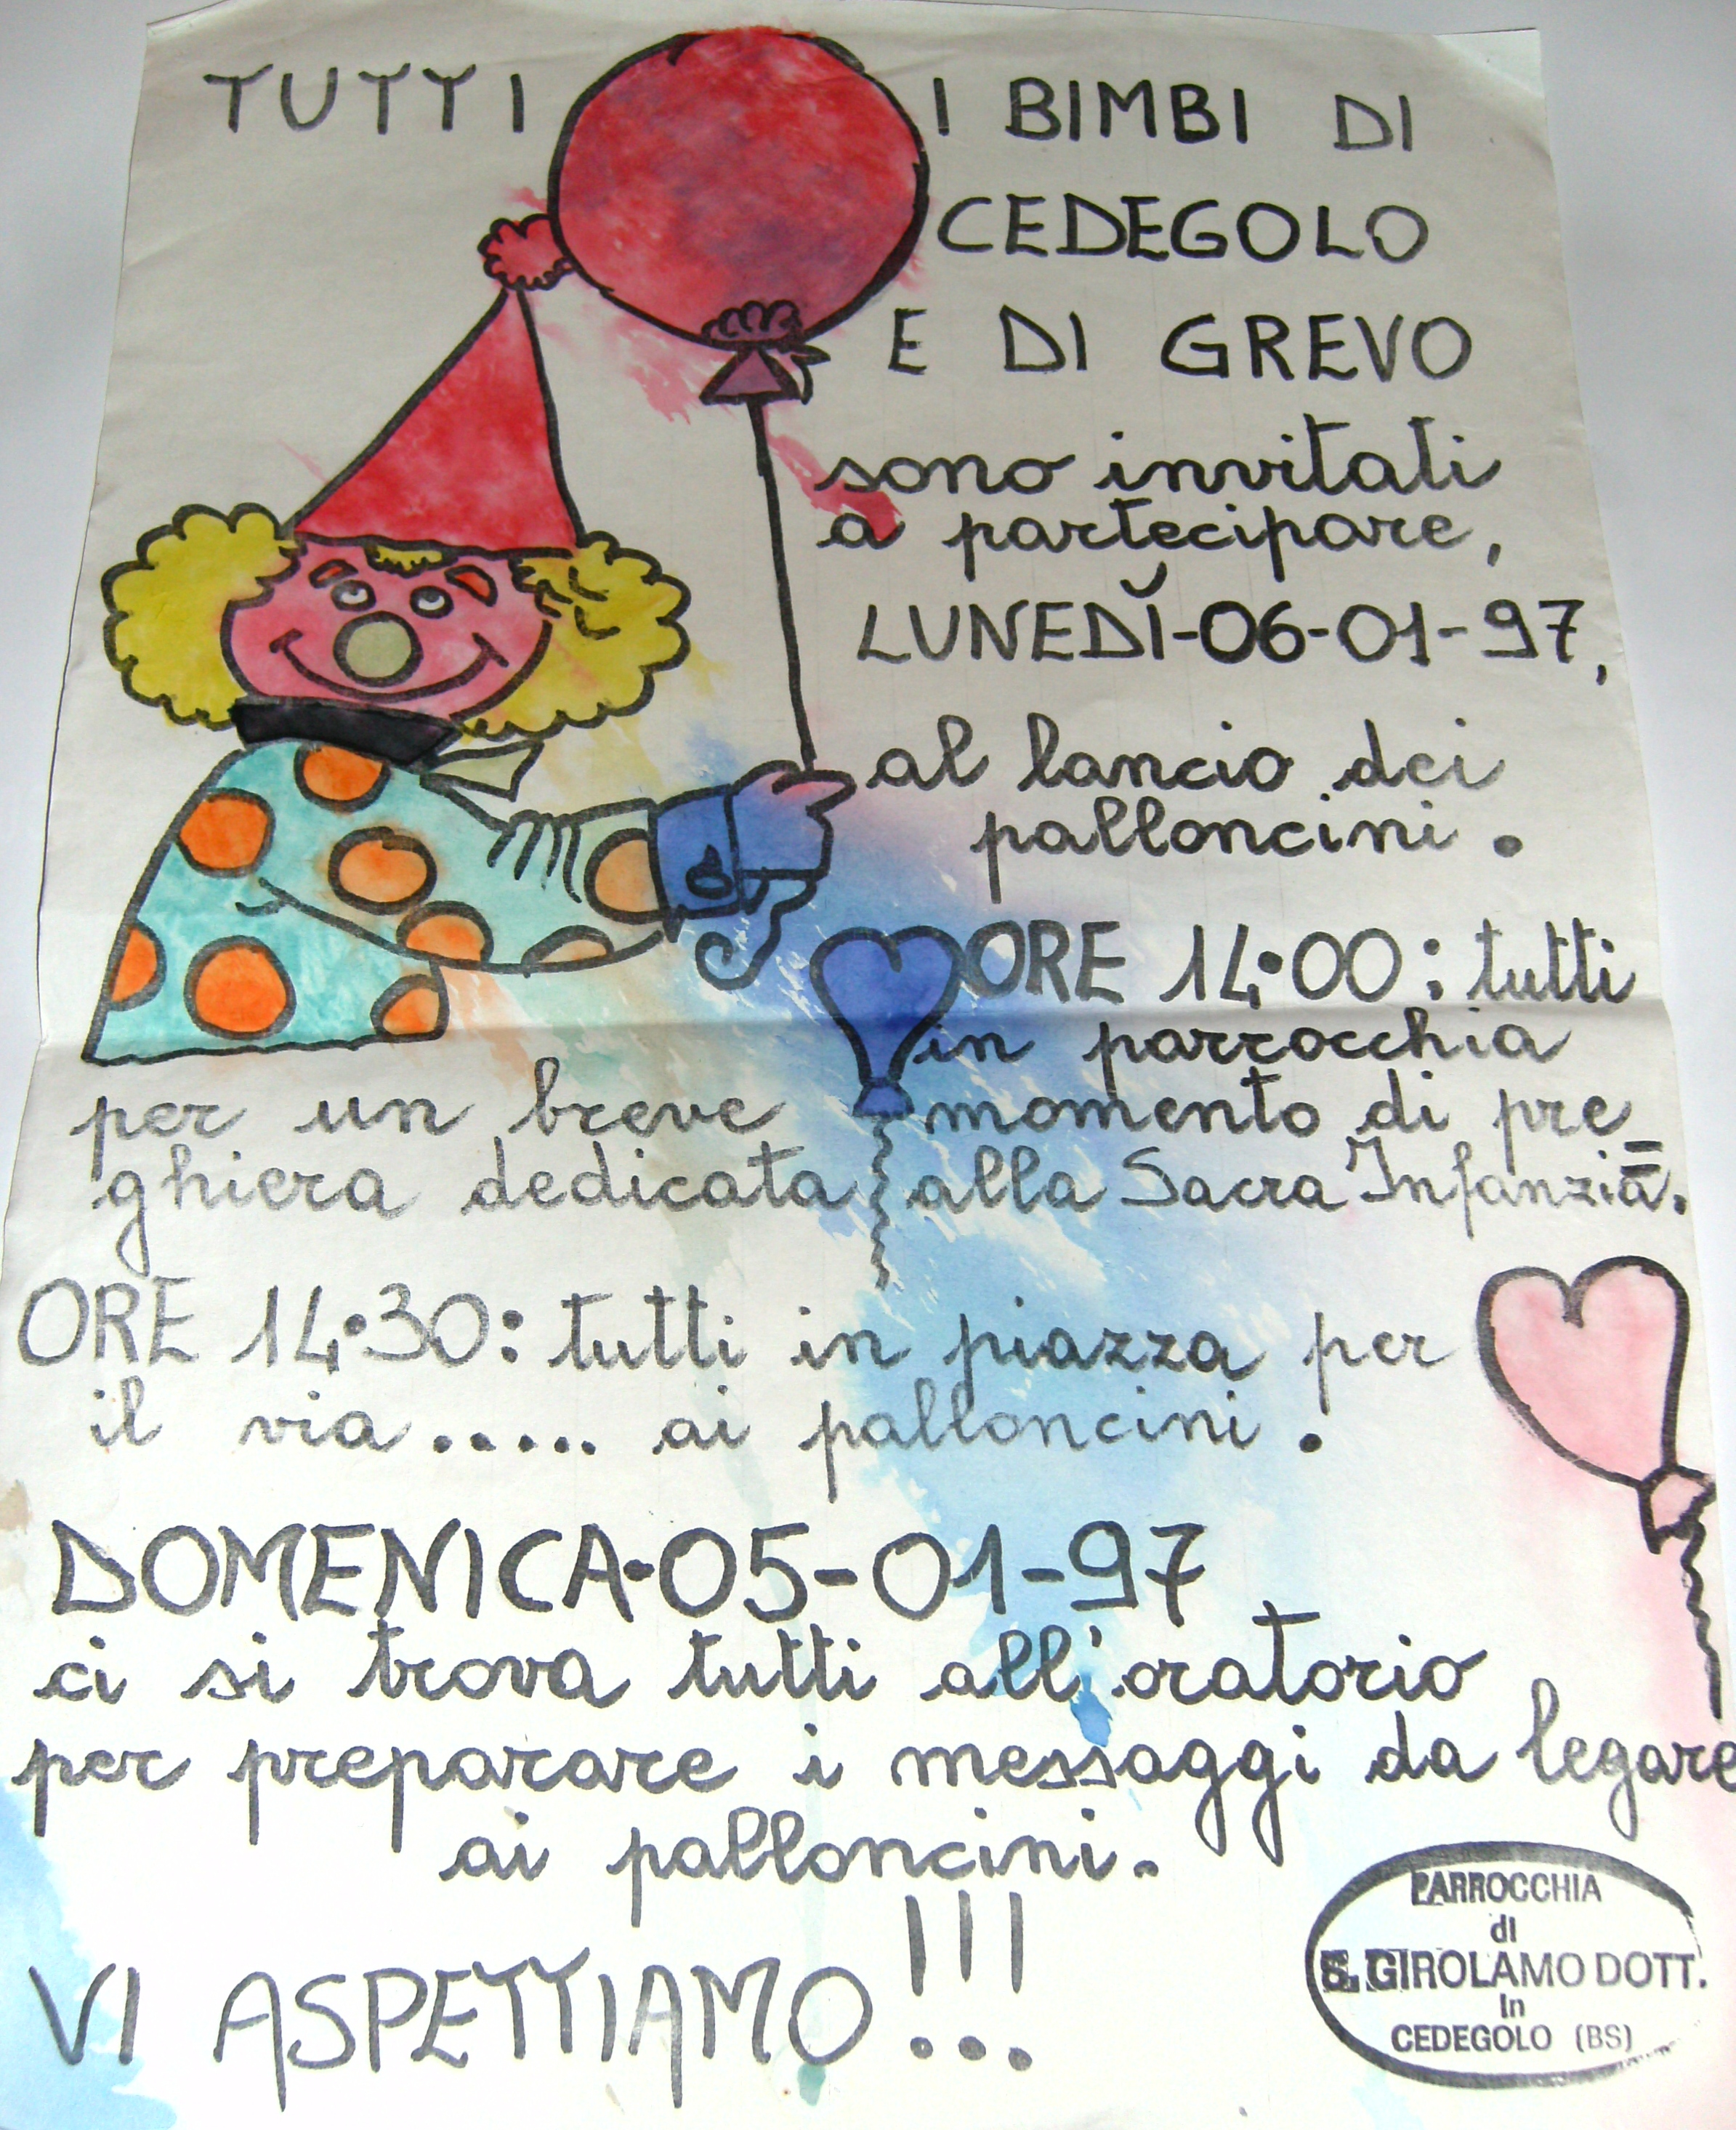 TUTTI I BIMBI DI
CEDEGOLO
E DI GREVO
sono invitati
a partecipare,
LUNEDÌ-06-01-97,
al lancio dei
palloncini.
ORE 14.00: tutti
in parrocchia
per un breve momento di pre=
ghiera dedicata alla Sacra Infanzia.
ORE 14.30: tutti in piazza per
il via..... ai palloncini.
DOMENICA-05-01-97
ci si trova tutti all'oratorio
per preparare i messaggi da legare
ai palloncini.
VI ASPETTIAMO!!!
PARROCCHIA
di
S. GIROLAMO DOTT.
in
CEDEGOLO (BS)